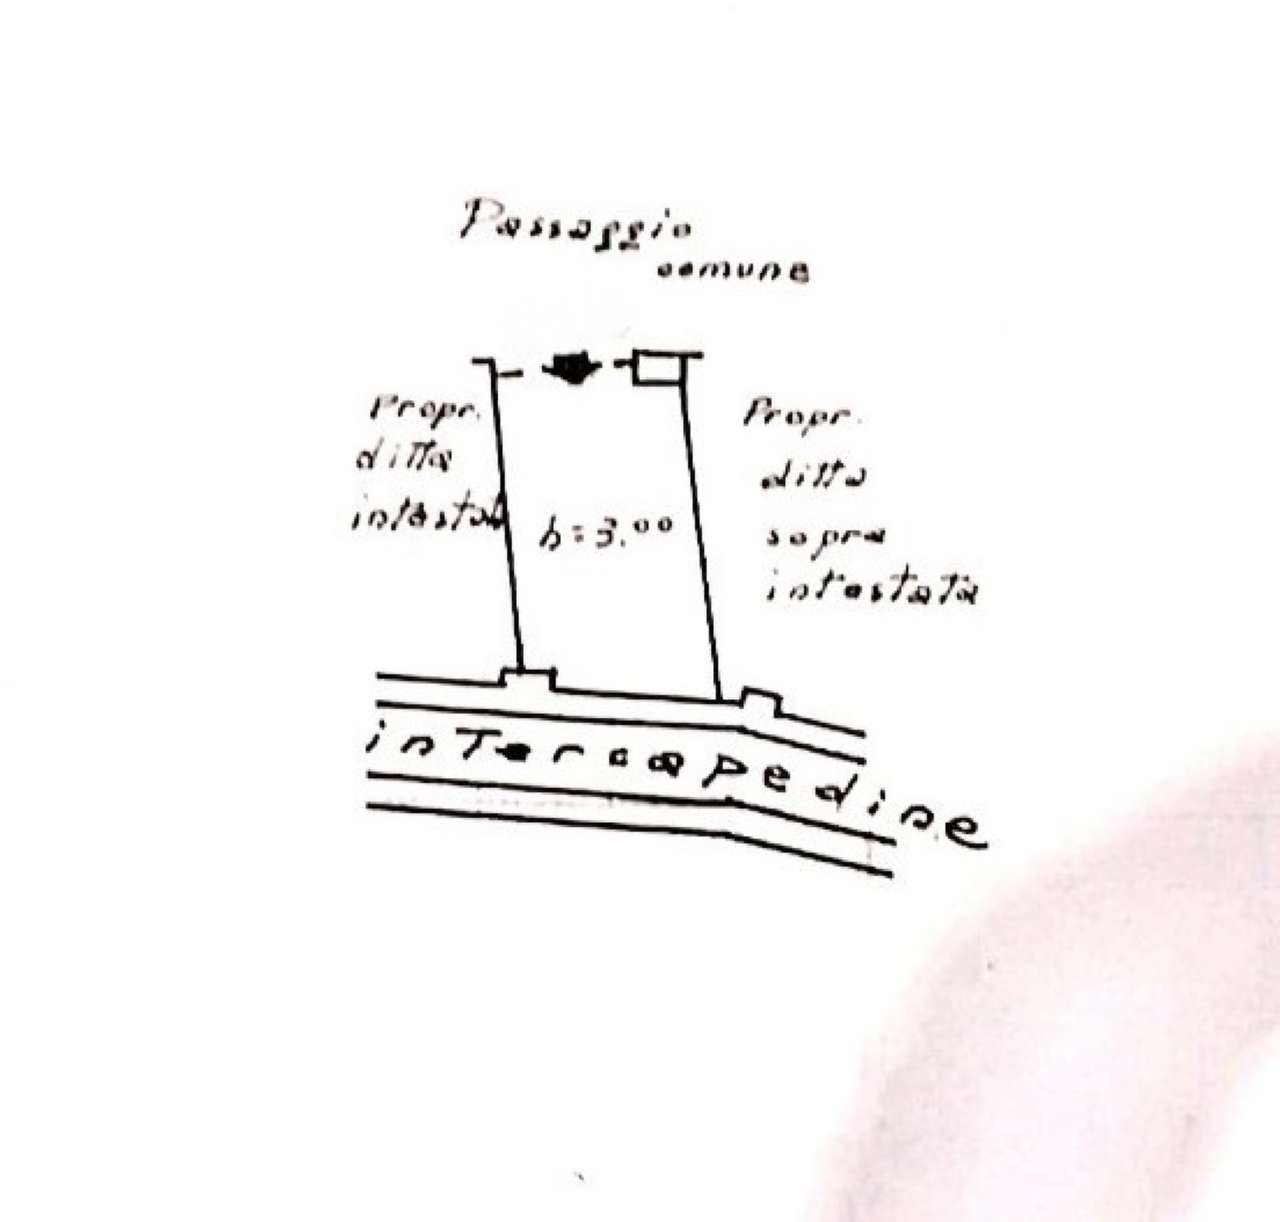 Passaggio
comune
Propr.
ditta
intestat
h=3.00
Propr.
ditta
sopra
intestata
intercapedine